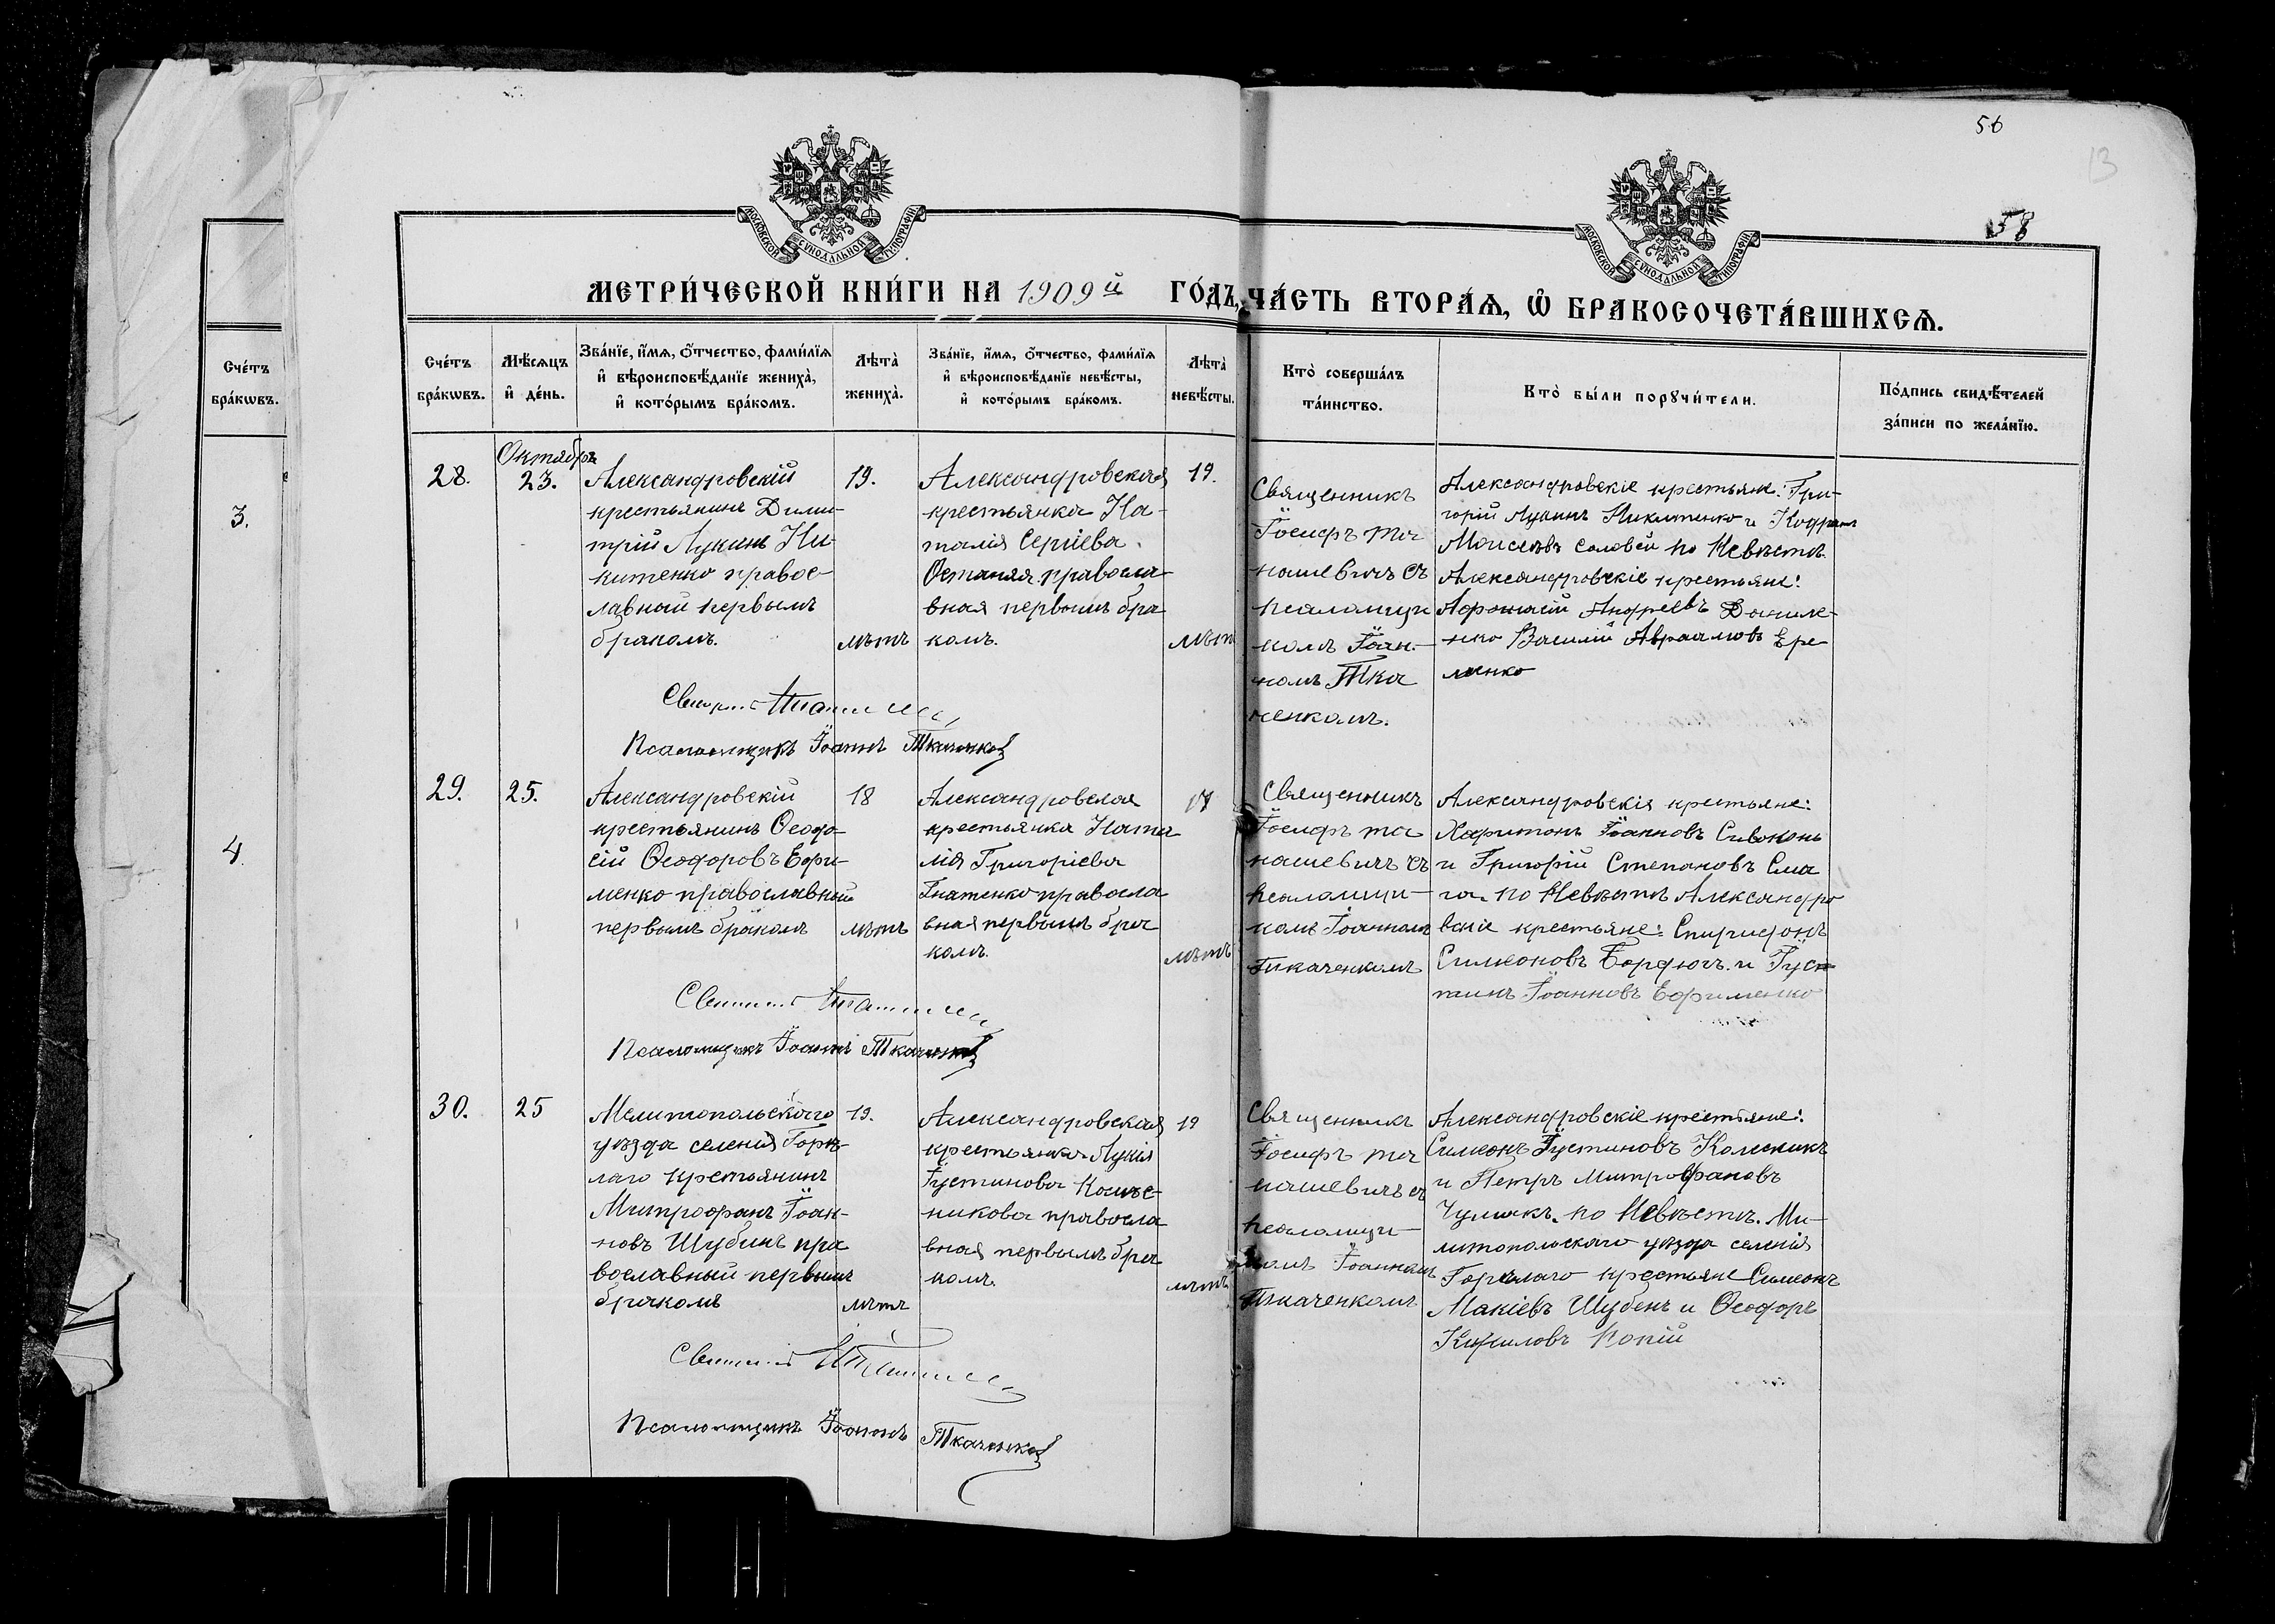 56
13
58
МОСКОВСКОЙ СѴНОДАЛЬНОЙ ТИПОГРАФІИ
МОСКОВСКОЙ СѴНОДАЛЬНОЙ ТИПОГРАФІИ
МЕТРИ́ЧЕСКОЙ КНИ́ГИ НА 1909й ГО́ДЪ, ЧА́СТЬ ВТОРА́Ѧ, Ѽ БРАКОСОЧЕТА́ВШИХСѦ.
Сче́тъ
бра́кωвъ.
3.
4
Сче́тъ
бра́кωвъ.
Мѣ́сѧцъ
и҆ де́нь.
Зва́нїе, и҆́мѧ, ѻ҆́тчество, фами́лїѧ
и҆ вѣроисповѣ́данїе жениха̀,
и҆ кото́рымъ бра́комъ.
Лѣта̀
жениха̀.
Зва́нїе, и҆́мѧ, ѻ҆́тчество, фами́лїѧ
и҆ вѣроисповѣ́данїе невѣ́сты,
и҆ кото́рымъ бра́комъ.
Лѣта̀
невѣ́сты.
Кто̀ соверша́лъ
та́инство.
Кто̀ бы́ли порꙋчи́тели.
По́дпись свидѣ́телей
за́писи по жела́нїю.
28.
Октябрь
23.
Александровскій
крестьянинъ Дими-
трій Лукинъ Ни-
китенко правос-
лавный первымъ
бракомъ.
19.
лѣтъ
Александровская
крестьянка На-
талія Сергіева
правосла
вная первымъ бра
комъ.
19.
лѣтъ
Священникъ
Іосифъ та
нашевичъ съ
псаломщи
комъ Іоан-
номъ Тка
ченкомъ.
Александровскіе крестьяне: Гри-
горій Лукинъ Никитенко и
Моисеевъ Соловей по Невѣстѣ
Александровскіе крестьяне:
Афанасій Андреевъ Даниле-
нко Василій Авраамовъ Ере
менко
Псаломщикъ Іоаннъ Ткаченко
29.
25.
Александровскій
крестьянинъ Ѳеодо
сій Ѳеодоровъ Ефи-
менко православный
первымъ бракомъ
18
лѣтъ
Александровская
крестьянка Ната
лія Григоріева
Гнатенко правосла
вная первымъ бра
комъ.
лѣтъ
Священникъ
Іосифъ та
нашевичъ съ
псаломщи-
комъ Іоанномъ
Ткаченкомъ
Александровскія крестьяне:
Харитонъ Іоанновъ Сивоконь
и Григорій Степановъ Сма
га. по Невѣстѣ Александро
вскіе крестьяне: Спиридонъ
Симеоновъ Бордюгъ и Іус
тинъ Іоанновъ Ефименко
Псаломщикъ Іоаннъ Ткаченко
30.
25
Мелитопольскаго
уѣзда селенія Горѣ-
лаго крестьянинъ
Митрофанъ Іоан-
новъ Шубинъ пра
вославный первымъ
бракомъ
19.
лѣтъ
Александровская
крестьянка Лукія
Іустинова Колес-
никова правосла
вная первымъ бра
комъ.
19
лѣтъ
Священникъ
Іосифъ та
нашевичъ съ
псаломщи-
комъ Іоанномъ
Ткаченкомъ
Александровскіе крестьяне:
Симеонъ Іустиновъ Колесникъ
и Петръ Митрофановъ
Чумакъ. по Невѣстѣ. Ми-
литопольскаго уѣзда селенія
Горѣлаго крестьяне Симеонъ
Макіевъ Шубенъ и Ѳеодоръ
Кириловъ Копій
Псаломщикъ Іоаннъ Ткаченко